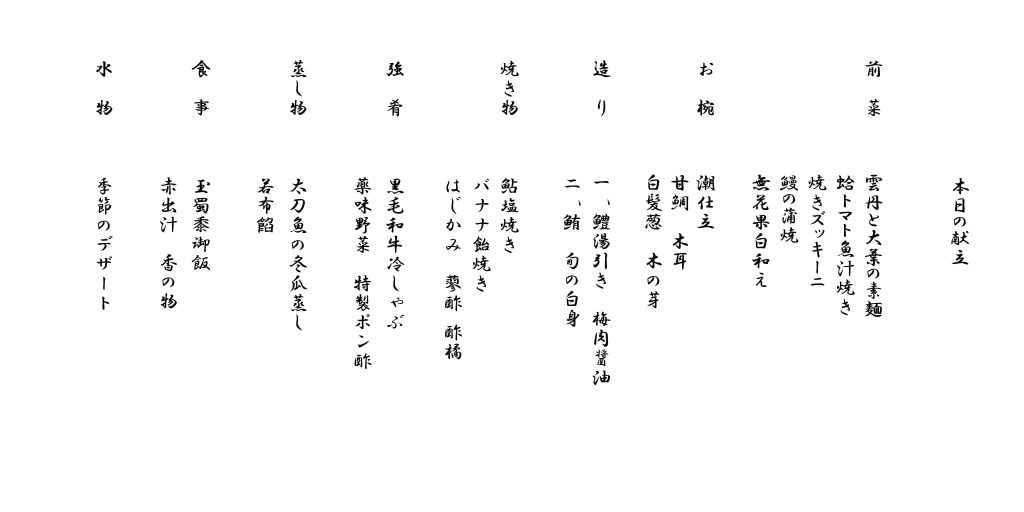 本日の献立
前菜
雲丹と大葉の素麺
蛤トマト魚汁焼き
焼きズッキーニ
鰻の蒲焼
無花果白和え
お椀
潮仕立
甘鯛 木耳
白髪葱 木の芽
造り
一、鱧湯引き 梅肉醤油
二、鮪 旬の白身
焼き物
鮎塩焼き
バナナ飴焼き
はじかみ 蓼酢 酢橘
強肴
黒毛和牛冷しゃぶ
薬味野菜 特製ポン酢
蒸し物
太刀魚の冬瓜蒸し
若布餡
食事
玉蜀黍御飯
赤出汁 香の物
水物
季節のデザート